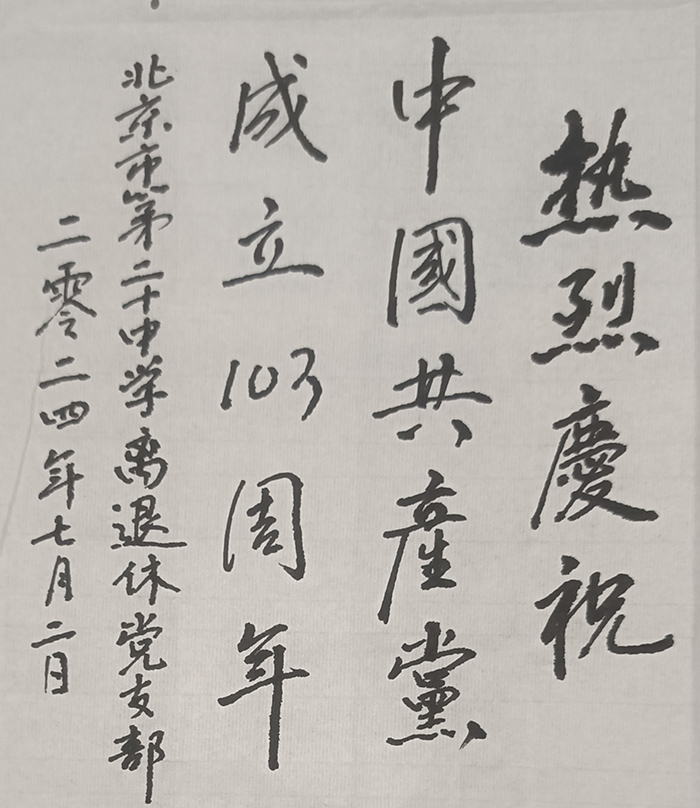 热烈慶祝
中國共產黨
成立103周年
北京市第二十中学离退休党支部
二零二四年七月二日